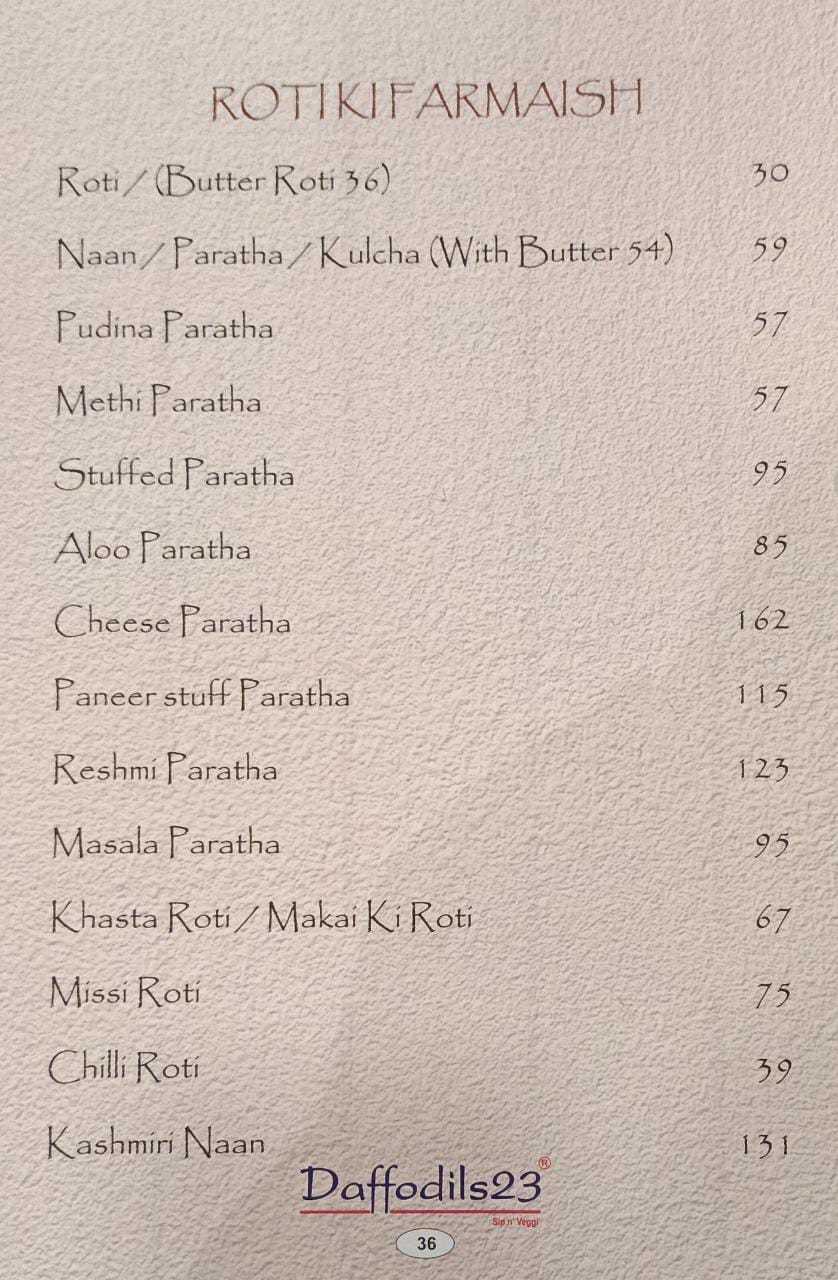 ROTI KI FARMAISH
Roti / (Butter Roti 36) 30
Naan / Paratha / Kulcha (With Butter 54) 59
Pudina Paratha 57
Methi Paratha 57
Stuffed Paratha 95
Aloo Paratha 85
Cheese Paratha 162
Paneer stuff Paratha 115
Reshmi Paratha 123
Masala Paratha 95
Khasta Roti / Makai Ki Roti 67
Missi Roti 75
Chilli Roti 39
Kashmiri Naan 131
Daffodils23®
Sip n' Veggi
36